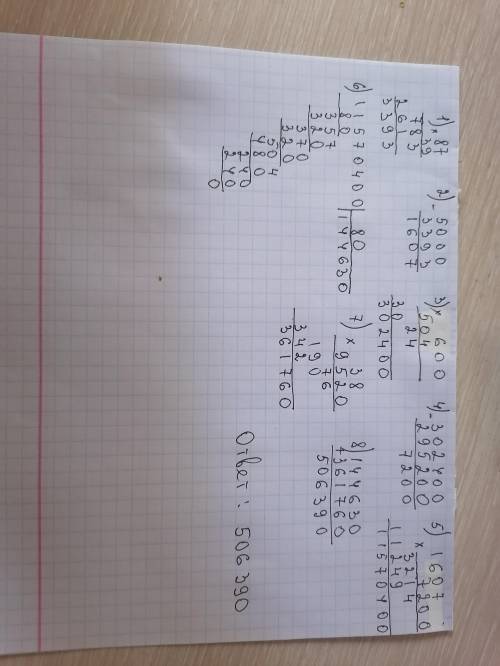 1) × 87
39
783
261
3393
2) - 5000
3393
1607
3) × 600
504
24
30
302400
4) - 302400
295200
7200
5) × 1607
7200
3214
11249
11570400
6) 11570400 | 80
80 144630
357
320
370
320
504
480
240
240
0
7) × 38
9520
76
190
342
361760
8) + 144630
361760
506390
Ответ: 506390